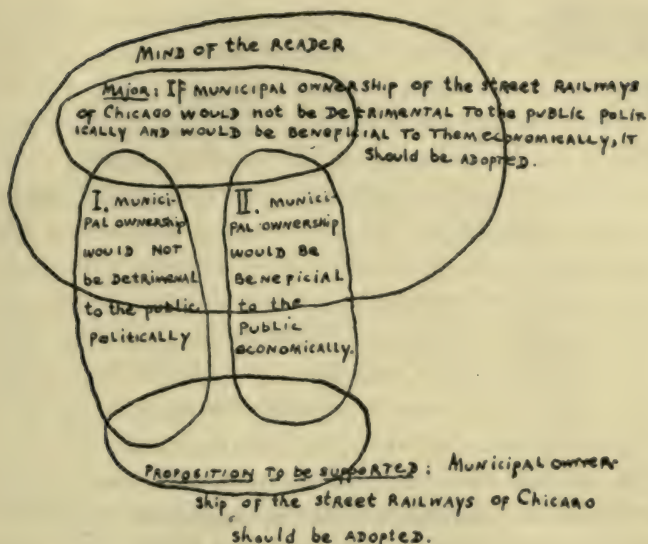 MIND OF the READER
MAJOR: IF MUNICIPAL OWNERSHIP OF the STREET RAILWAYS
OF CHICAGO WOULD not be DETRIMENTAL TO the PUBLIC POLIT-
ICALLY AND WOULD be BENEFICIAL TO THEM ECONOMICALLY, IT
SHOULD be ADOPTED.
I. MUNICI-
PAL OWNERSHIP
WOULD NOT
be DETRIMENAL
to the public
POLITICALLY
II. MUNICI-
PAL OWNERSHIP
WOULD BE
BENEFICIAL
to the
PUBLIC
ECONOMICALLY.
PROPOSITION TO be SUPPORTED: MUNICIPAL OWNER-
ship of the STREET RAILWAYS OF CHICAGO
should be ADOPTED.